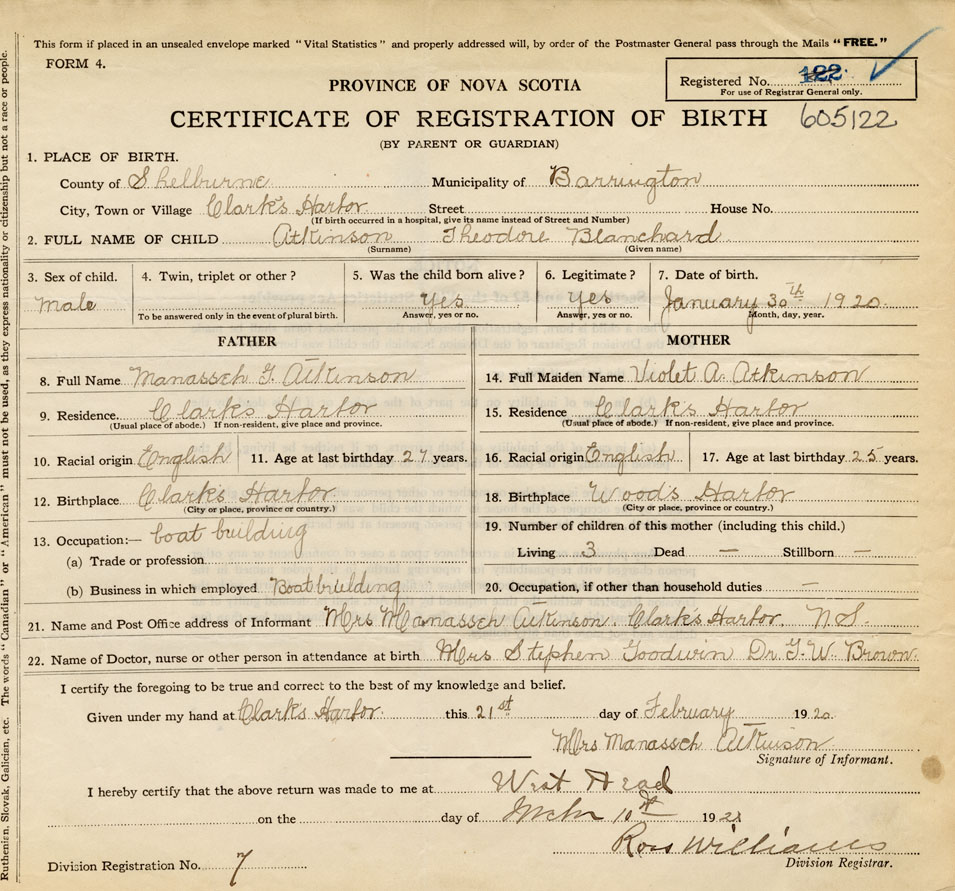 This form if placed in an unsealed envelope marked "Vital Statistics" and properly addressed will, by order of the Postmaster General pass through the Mails "FREE."
FORM 4.
Registered No. 122
For use of Registrar General only.
PROVINCE OF NOVA SCOTIA
CERTIFICATE OF REGISTRATION OF BIRTH 605122
(BY PARENT OR GUARDIAN)
1. PLACE OF BIRTH.
County of Shelburne Municipality of Barrington
City, Town or Village Clark's Harbor Street House No.
(If birth occurred in a hospital, give its name instead of Street and Number)
2. FULL NAME OF CHILD Atkinson Theodore Blanchard
(Surname) (Given name)
3. Sex of child. 4. Twin, triplet or other? 5. Was the child born alive? 6. Legitimate? 7. Date of birth.
Male Yes Yes January 30th 1920
To be answered only in the event of plural birth. Answer, yes or no. Answer, yes or no. Month, day, year.
FATHER
8. Full Name Manasseh T. Atkinson
9. Residence. Clark's Harbor
(Usual place of abode.) If non-resident, give place and province.
10. Racial origin English 11. Age at last birthday 27 years.
12. Birthplace Clark's Harbor
(City or place, province or country.)
13. Occupation:— boat building
(a) Trade or profession
(b) Business in which employed Boatbuilding
MOTHER
14. Full Maiden Name Violet A. Atkinson
15. Residence Clark's Harbor
(Usual place of abode.) If non-resident, give place and province.
16. Racial origin English 17. Age at last birthday 25 years.
18. Birthplace Wood's Harbor
(City or place, province or country.)
19. Number of children of this mother (including this child.)
Living 3 Dead — Stillborn —
20. Occupation, if other than household duties —
21. Name and Post Office address of Informant Mrs Manasseh Atkinson. Clark's Harbor N S.
22. Name of Doctor, nurse or other person in attendance at birth Mrs Stephen Goodwin Dr. T. W. Brown.
I certify the foregoing to be true and correct to the best of my knowledge and belief.
Given under my hand at Clark's Harbor. this 21st day of February 1920
Mrs Manasseh Atkinson
Signature of Informant.
I hereby certify that the above return was made to me at West Head
on the day of 10th 19
Ross Williams
Division Registrar.
Division Registration No. 7
Ruthenian, Slovak, Galician, etc. The words "Canadian" or "American" must not be used, as they express nationality or citizenship but not a race or people.